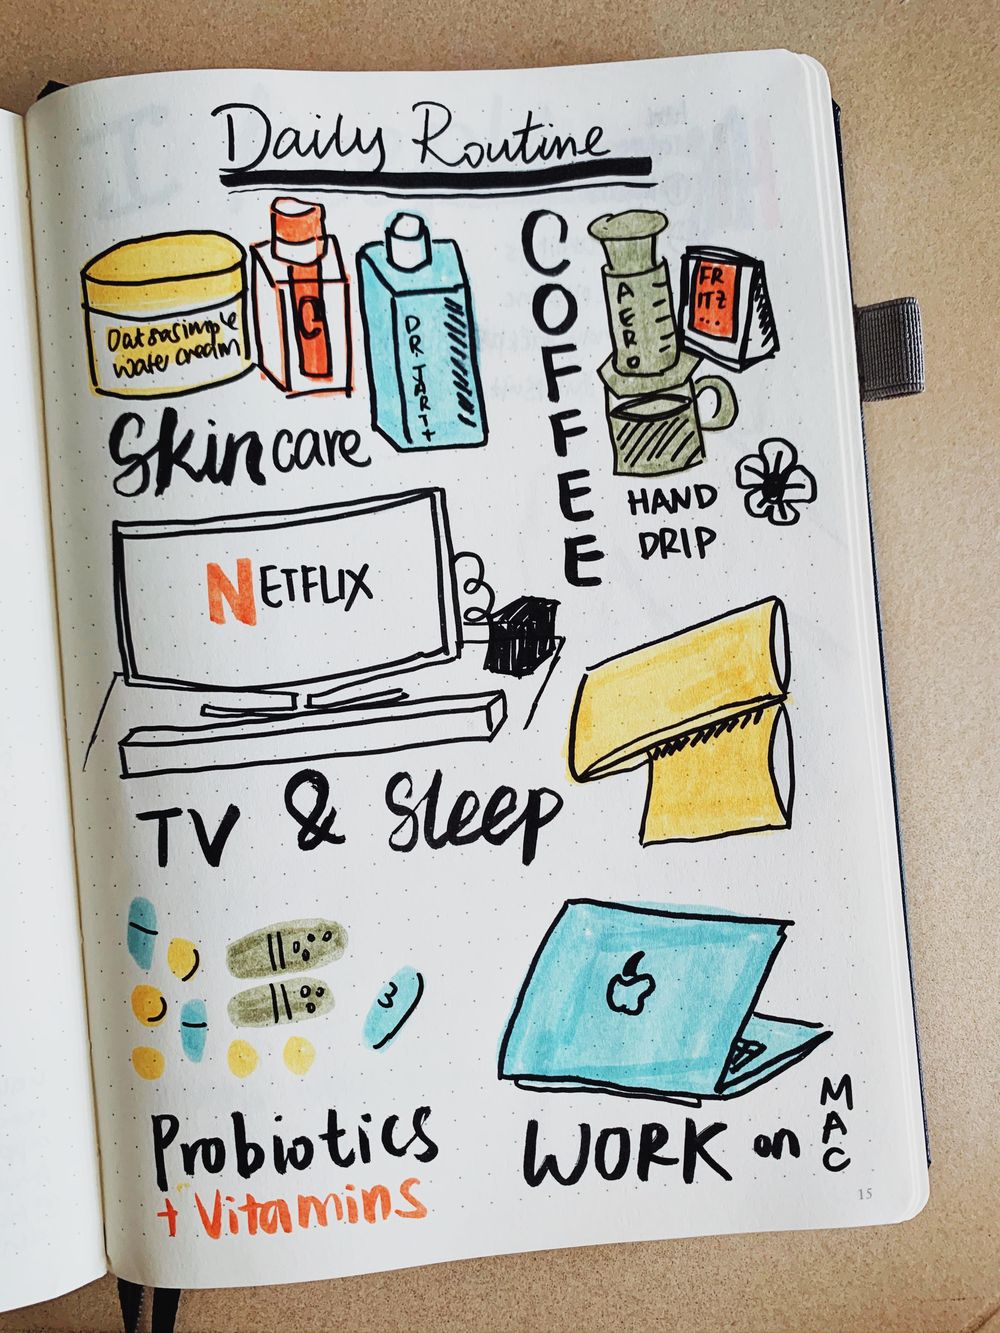 Daily Routine
water cream
C
DR.JART+
Skincare
COFFEE
AERO
FR
ITZ
...
HAND
DRIP
NETFLIX
TV & Sleep
3
Probiotics
+ Vitamins
WORK on MAC
15